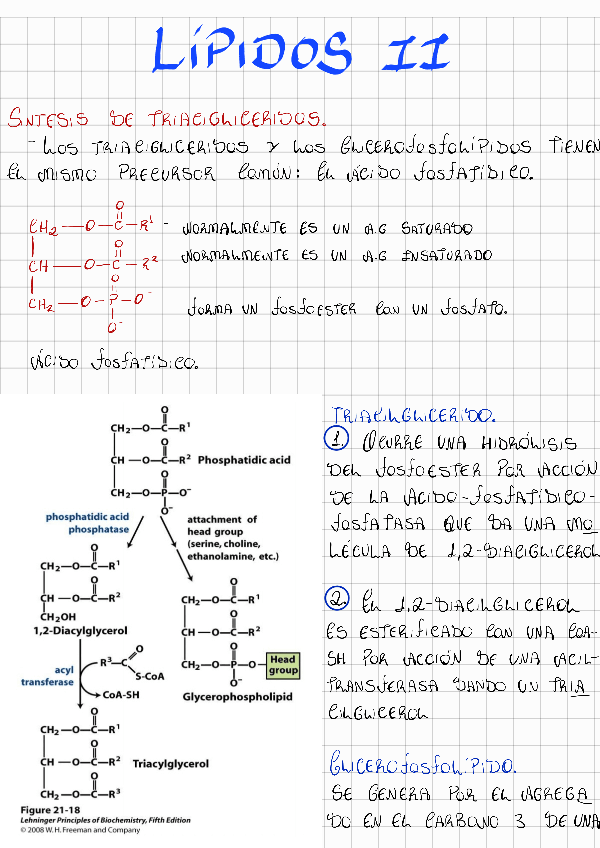 LÍPIDOS II
SINTESIS DE TRIACIGLICERIDOS.
- LOS TRIACIGLICERIDOS Y LOS GLICEROFOSFOLÍPIDOS TIENEN
EL MISMO PRECURSOR COMÚN: EL ÁCIDO FOSFATÍDICO.
O
CH2—O—C—R1 - NORMALMENTE ES UN A.G SATURADO
O
CH—O—C—R2 NORMALMENTE ES UN A.G INSATURADO
O
CH2—O—P—O- FORMA UN FOSFOESTER CON UN FOSFATO.
O-
ÁCIDO FOSFATÍDICO.
O
CH2—O—C—R1
O
CH—O—C—R2 Phosphatidic acid
O
CH2—O—P—O-
O-
phosphatidic acid
phosphatase
attachment of
head group
(serine, choline,
ethanolamine, etc.)
O
CH2—O—C—R1
O
CH—O—C—R2
CH2OH
1,2-Diacylglycerol
O
CH2—O—C—R1
O
CH—O—C—R2
O
CH2—O—P—O—Head
group
O-
Glycerophospholipid
acyl
transferase
R3—C
O
S-CoA
CoA-SH
O
CH2—O—C—R1
O
CH—O—C—R2 Triacylglycerol
O
CH2—O—C—R3
Figure 21-18
Lehninger Principles of Biochemistry, Fifth Edition
© 2008 W. H. Freeman and Company
TRIACILGLICERIDO.
1. OCURRE UNA HIDRÓLISIS
DEL FOSFOESTER POR ACCIÓN
DE LA ÁCIDO-FOSFATÍDICO-
FOSFATASA QUE DA UNA MO
LÉCULA DE 1,2-DIACIGLICEROL
2. EL 1,2-DIACILGLICEROL
ES ESTERIFICADO CON UNA COA-
SH POR ACCIÓN DE UNA ACIL-
TRANSFERASA DANDO UN TRIA
CILGLICEROL
GLICEROFOSFOLÍPIDO.
SE GENERA POR EL AGREGA
DO EN EL CARBONO 3 DE UNA